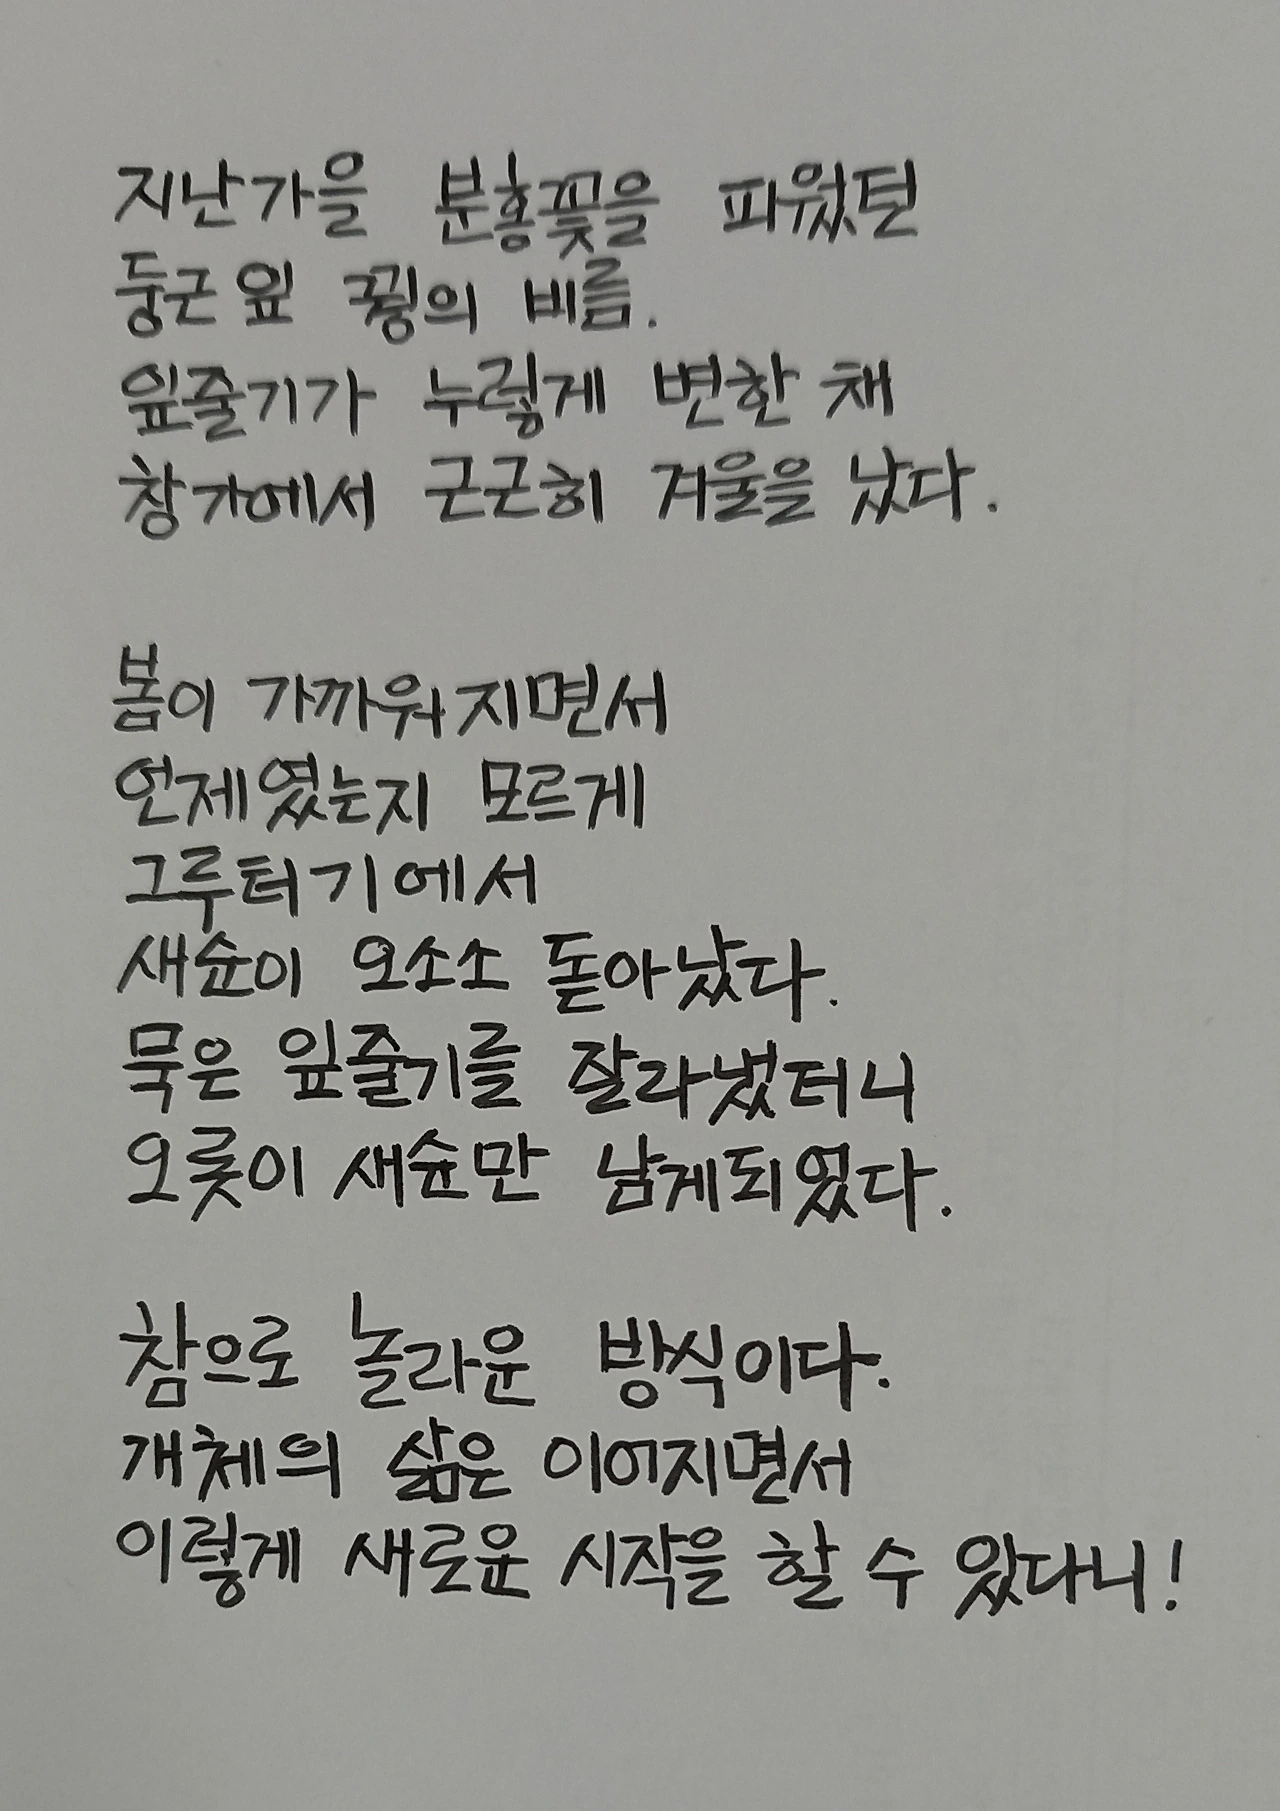 지난가을 분홍꽃을 피웠던
둥근잎 꿩의 비름.
잎줄기가 누렇게 변한 채
창가에서 근근히 겨울을 났다.
봄이 가까워지면서
언제였는지 모르게
그루터기에서
새순이 오소소 돋아났다.
묵은 잎줄기를 잘라냈더니
오롯이 새순만 남게되었다.
참으로 놀라운 방식이다.
개체의 삶은 이어지면서
이렇게 새로운 시작을 할 수 있다니!